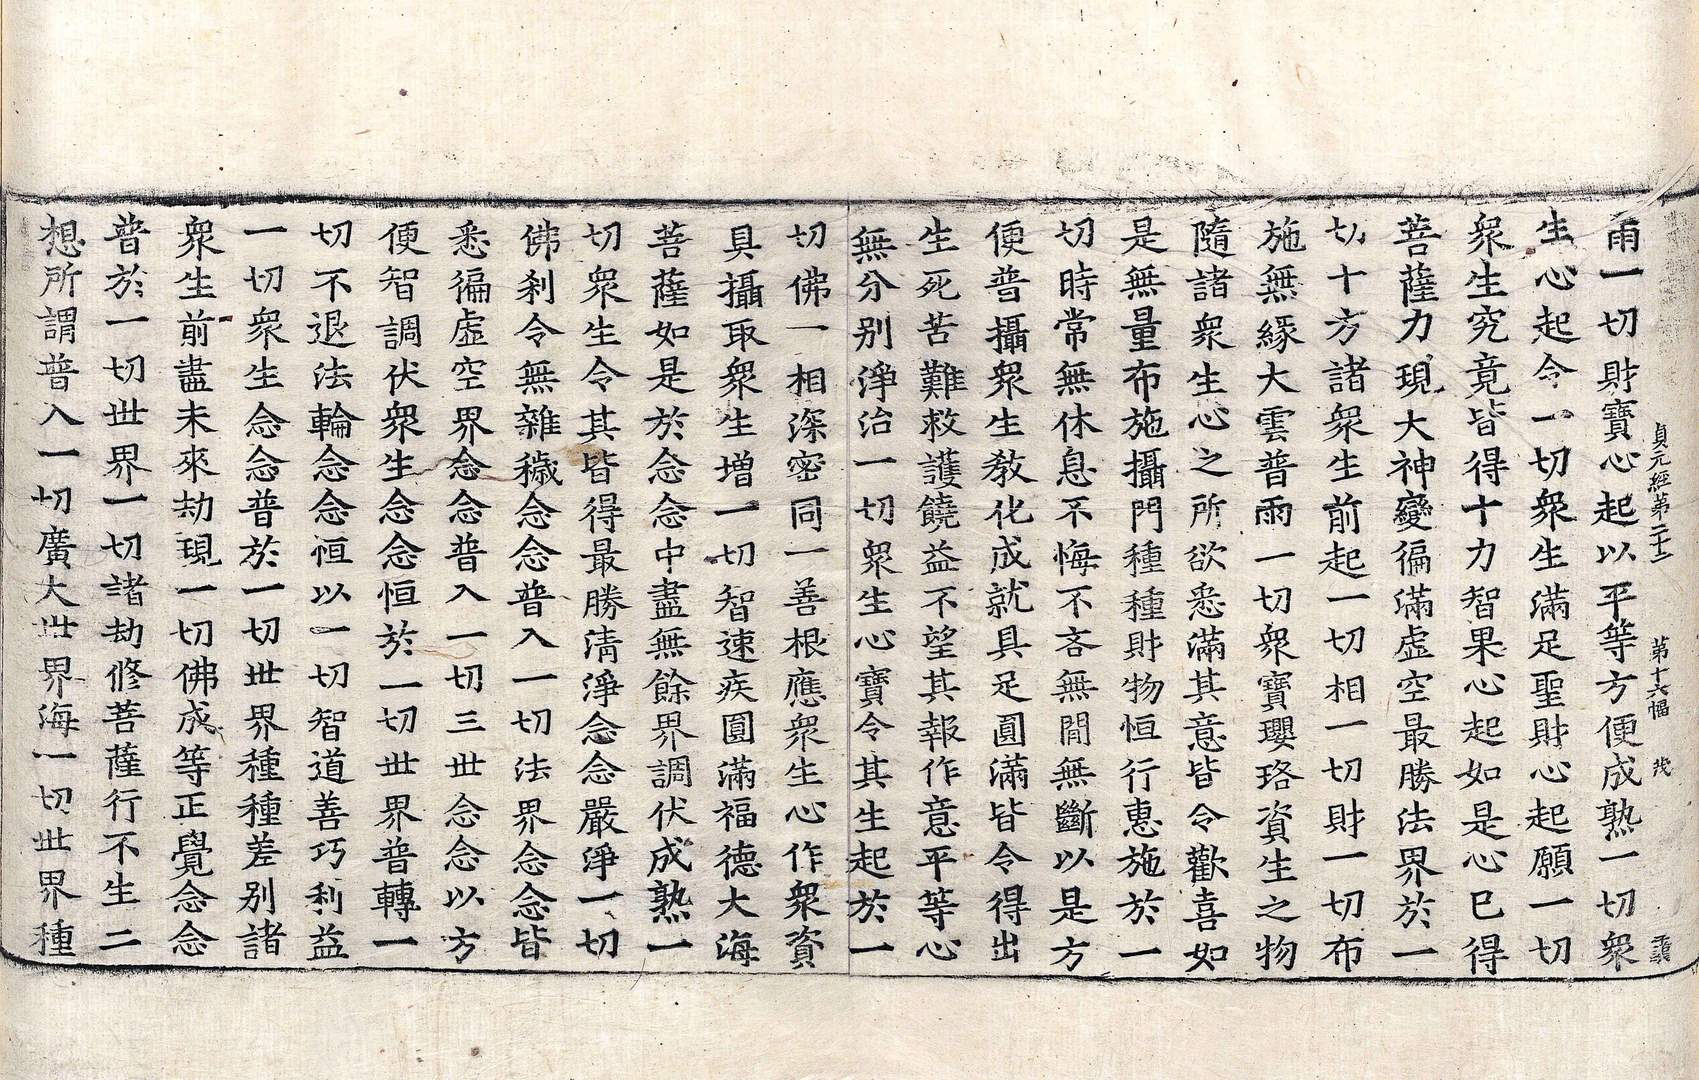 貞元經第二十二 第十六幅 茂
雨一切財寶心起以平等方便成熟一切衆
生心起令一切衆生滿足聖財心起願一切
衆生究竟皆得十力智果心起如是心已得
菩薩力現大神變徧滿虛空最勝法界於一
切十方諸衆生前起一切相一切財一切布
施無緣大雲普雨一切衆寶瓔珞資生之物
隨諸衆生心之所欲悉滿其意皆令歡喜如
是無量布施攝門種種財物恒行惠施於一
切時常無休息不悔不吝無閒無斷以是方
便普攝衆生教化成就具足圓滿皆令得出
生死苦難救護饒益不望其報作意平等心
無分別淨治一切衆生心寶令其生起於一
切佛一相深密同一善根應衆生心作衆資
具攝取衆生增一切智速疾圓滿福德大海
菩薩如是於念念中盡無餘界調伏成熟一
切衆生令其皆得最勝清淨念念嚴淨一切
佛刹令無雜穢念念普入一切法界念念皆
悉徧虛空界念念普入一切三世念念以方
便智調伏衆生念念恒於一切世界普轉一
切不退法輪念念恒以一切智道善巧利益
一切衆生念念普於一切世界種種差別諸
衆生前盡未來劫現一切佛成等正覺念念
普於一切世界一切諸劫修菩薩行不生二
想所謂普入一切廣大世界海一切世界種